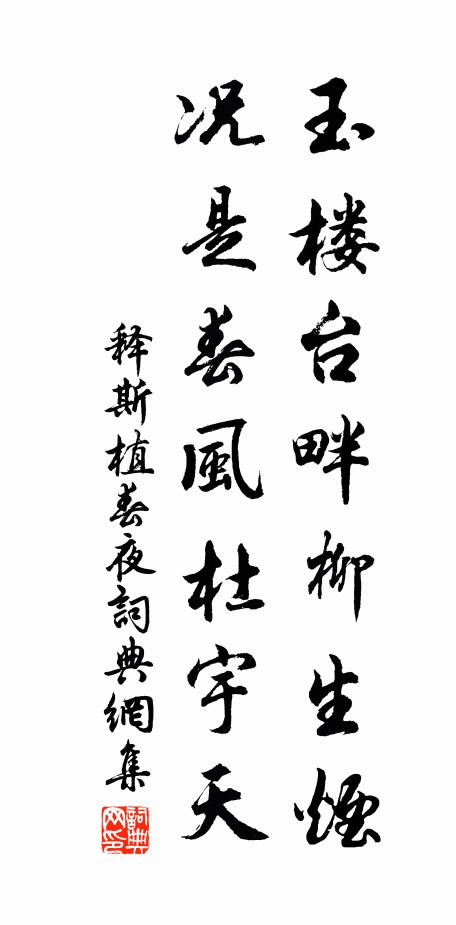 玉楼台畔柳生煙
况是春風杜宇天
释斯植春夜詞典網集
詞典網印